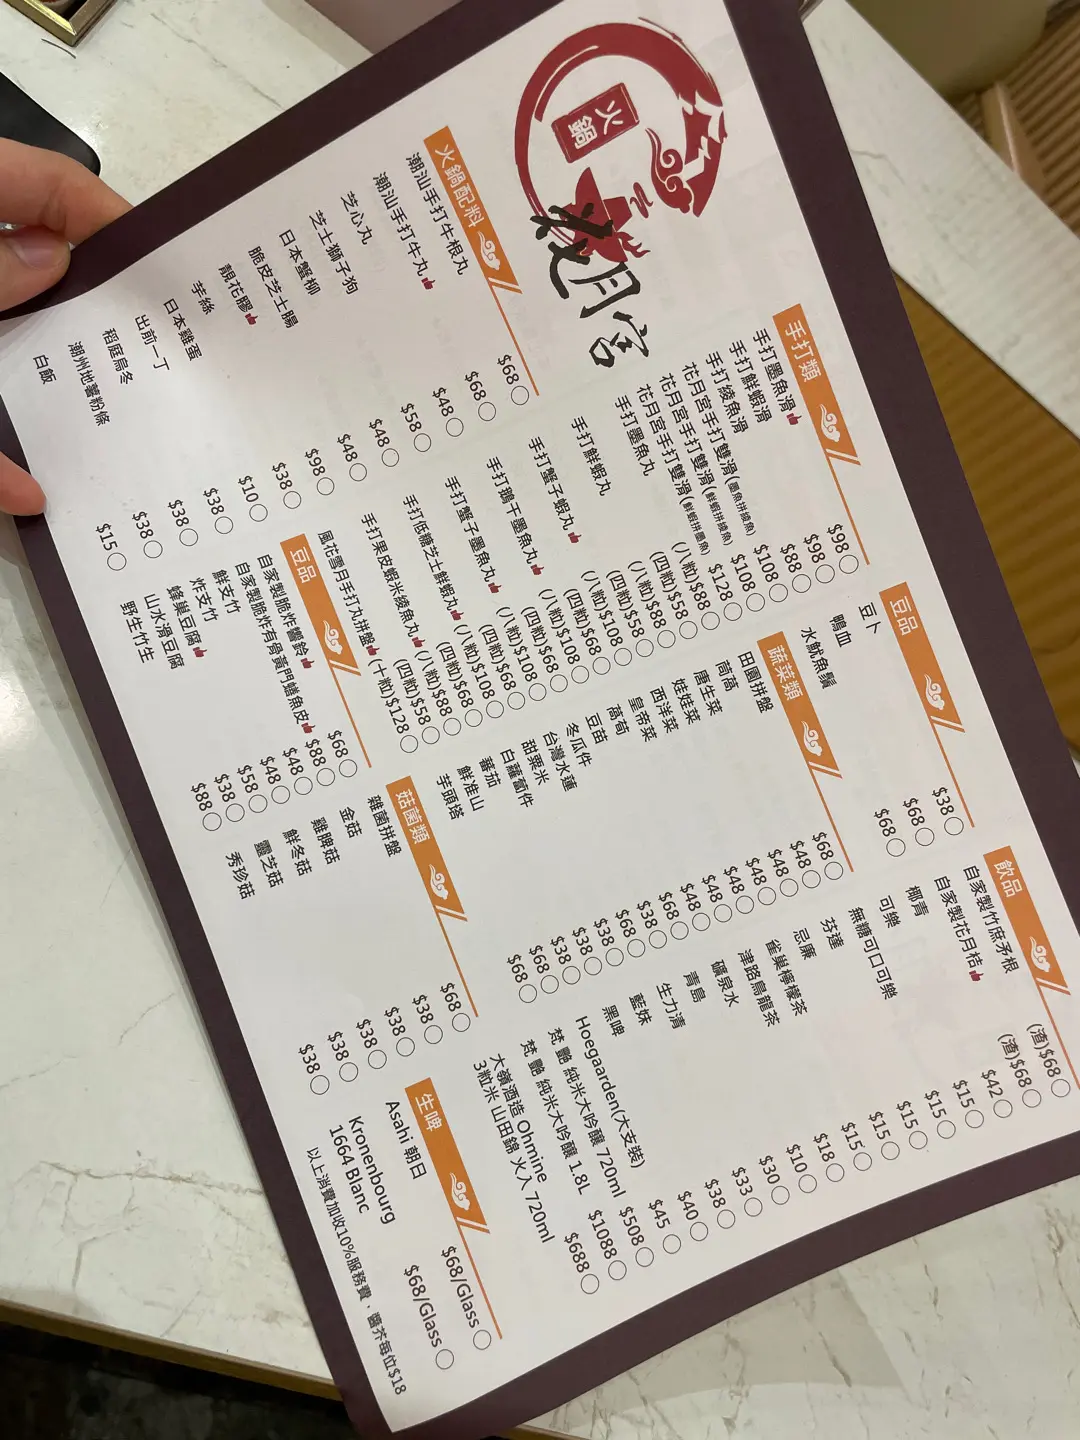 火鍋
花月宮
火鍋配料
潮汕手打牛根丸 $68
潮汕手打牛丸 $68
芝心丸 $48
芝士獅子狗 $58
日本蟹柳 $48
脆皮芝士腸 $48
靚花膠 $98
芋絲 $38
日本雞蛋 $10
出前一丁 $38
稻庭烏冬 $38
潮州地薯粉條 $38
白飯 $15
手打類
手打墨魚滑 $98
手打鮮蝦滑 $98
手打綾魚滑 $88
花月宮手打雙滑(墨魚拼綾魚) $108
花月宮手打雙滑(鮮蝦拼綾魚) $108
花月宮手打雙滑(鮮蝦拼墨魚) $128
手打墨魚丸 (八粒)$88
(四粒)$58
手打鮮蝦丸 (八粒)$88
(四粒)$58
手打蟹子蝦丸 (八粒)$108
(四粒)$68
手打鵝干墨魚丸 (八粒)$108
(四粒)$68
手打蟹子墨魚丸 (八粒)$108
(四粒)$68
手打低糖芝士鮮蝦丸 (八粒)$108
(四粒)$68
手打果皮蝦米綾魚丸 (八粒)$88
(四粒)$58
風花雪月手打丸拼盤 (十粒)$128
豆品
自家製脆炸響鈴 $68
自家製脆炸有骨黃門鱔魚皮 $88
鮮支竹 $48
炸支竹 $48
蜂巢豆腐 $58
山水滑豆腐 $38
野生竹生 $88
豆品
豆卜 $38
鴨血 $68
水魷魚鬚 $68
蔬菜類
田園拼盤 $68
茼蒿 $48
唐生菜 $48
娃娃菜 $48
西洋菜 $48
皇帝菜 $48
萵筍 $48
豆苗 $68
冬瓜件 $38
台灣水蓮 $68
甜粟米 $38
白蘿蔔件 $38
蕃茄 $38
鮮准山 $68
芋頭塔 $68
菇菌類
雜菌拼盤 $68
金菇 $38
雞脾菇 $38
鮮冬菇 $38
靈芝菇 $38
秀珍菇 $38
飲品
自家製竹蔗茅根 (渣)$68
自家製花月桔 (渣)$68
椰青 $42
可樂 $15
無糖可口可樂 $15
芬達 $15
忌廉 $15
雀巢檸檬茶 $15
津路烏龍茶 $18
礦泉水 $10
青島 $30
生力清 $33
藍妹 $38
黑啤 $40
Hoegaarden(大支裝) $45
梵 艷 純米大吟釀 720ml $508
梵 艷 純米大吟釀 1.8L $1088
大嶺酒造 Ohmine $688
3粒米 山田錦 火入 720ml
生啤
Asahi 朝日 $68/Glass
Kronenbourg
1664 Blanc $68/Glass
以上消費加收10%服務費，醬芥每位$18